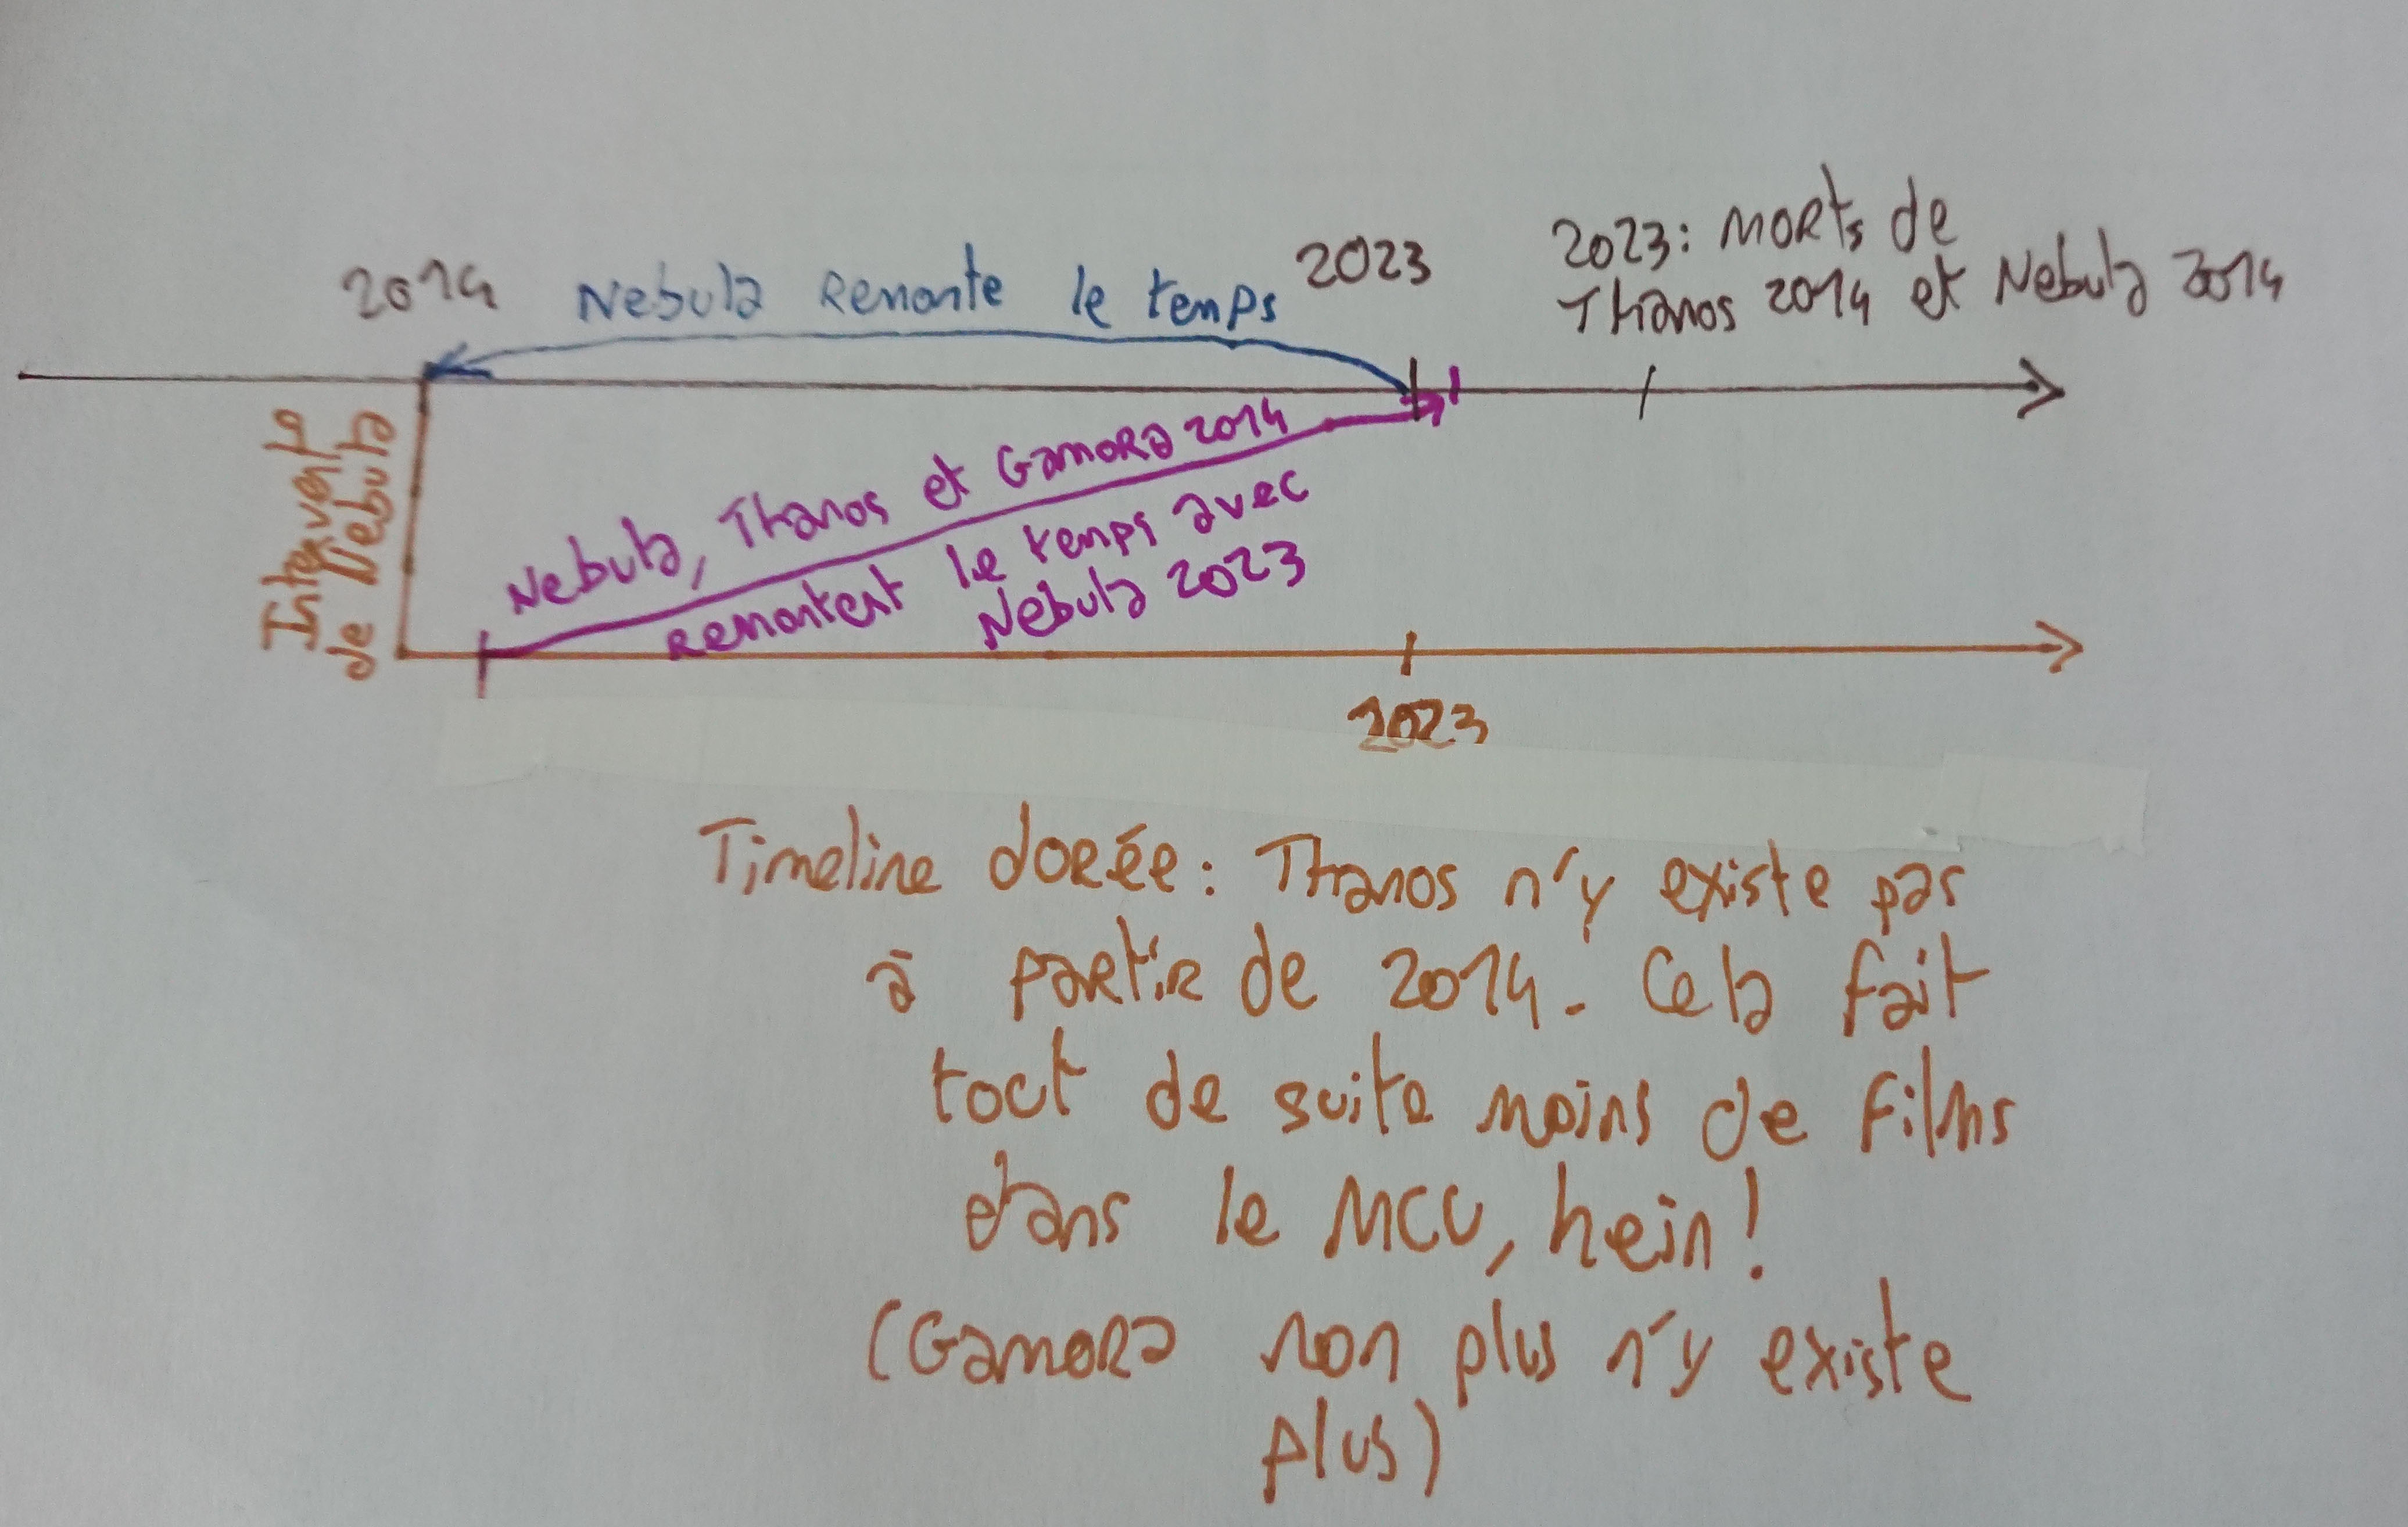 2014
Nebula remonte le temps
2023
2023: morts de
Thanos 2014 et Nebula 2014
Intervent°
de Nebula
Nebula, Thanos et Gamora 2014
remontent le temps avec
Nebula 2023
2023
Timeline dorée: Thanos n'y existe pas
à partir de 2014. Cela fait
tout de suite moins de films
dans le MCU, hein!
(Gamora non plus n'y existe
plus)